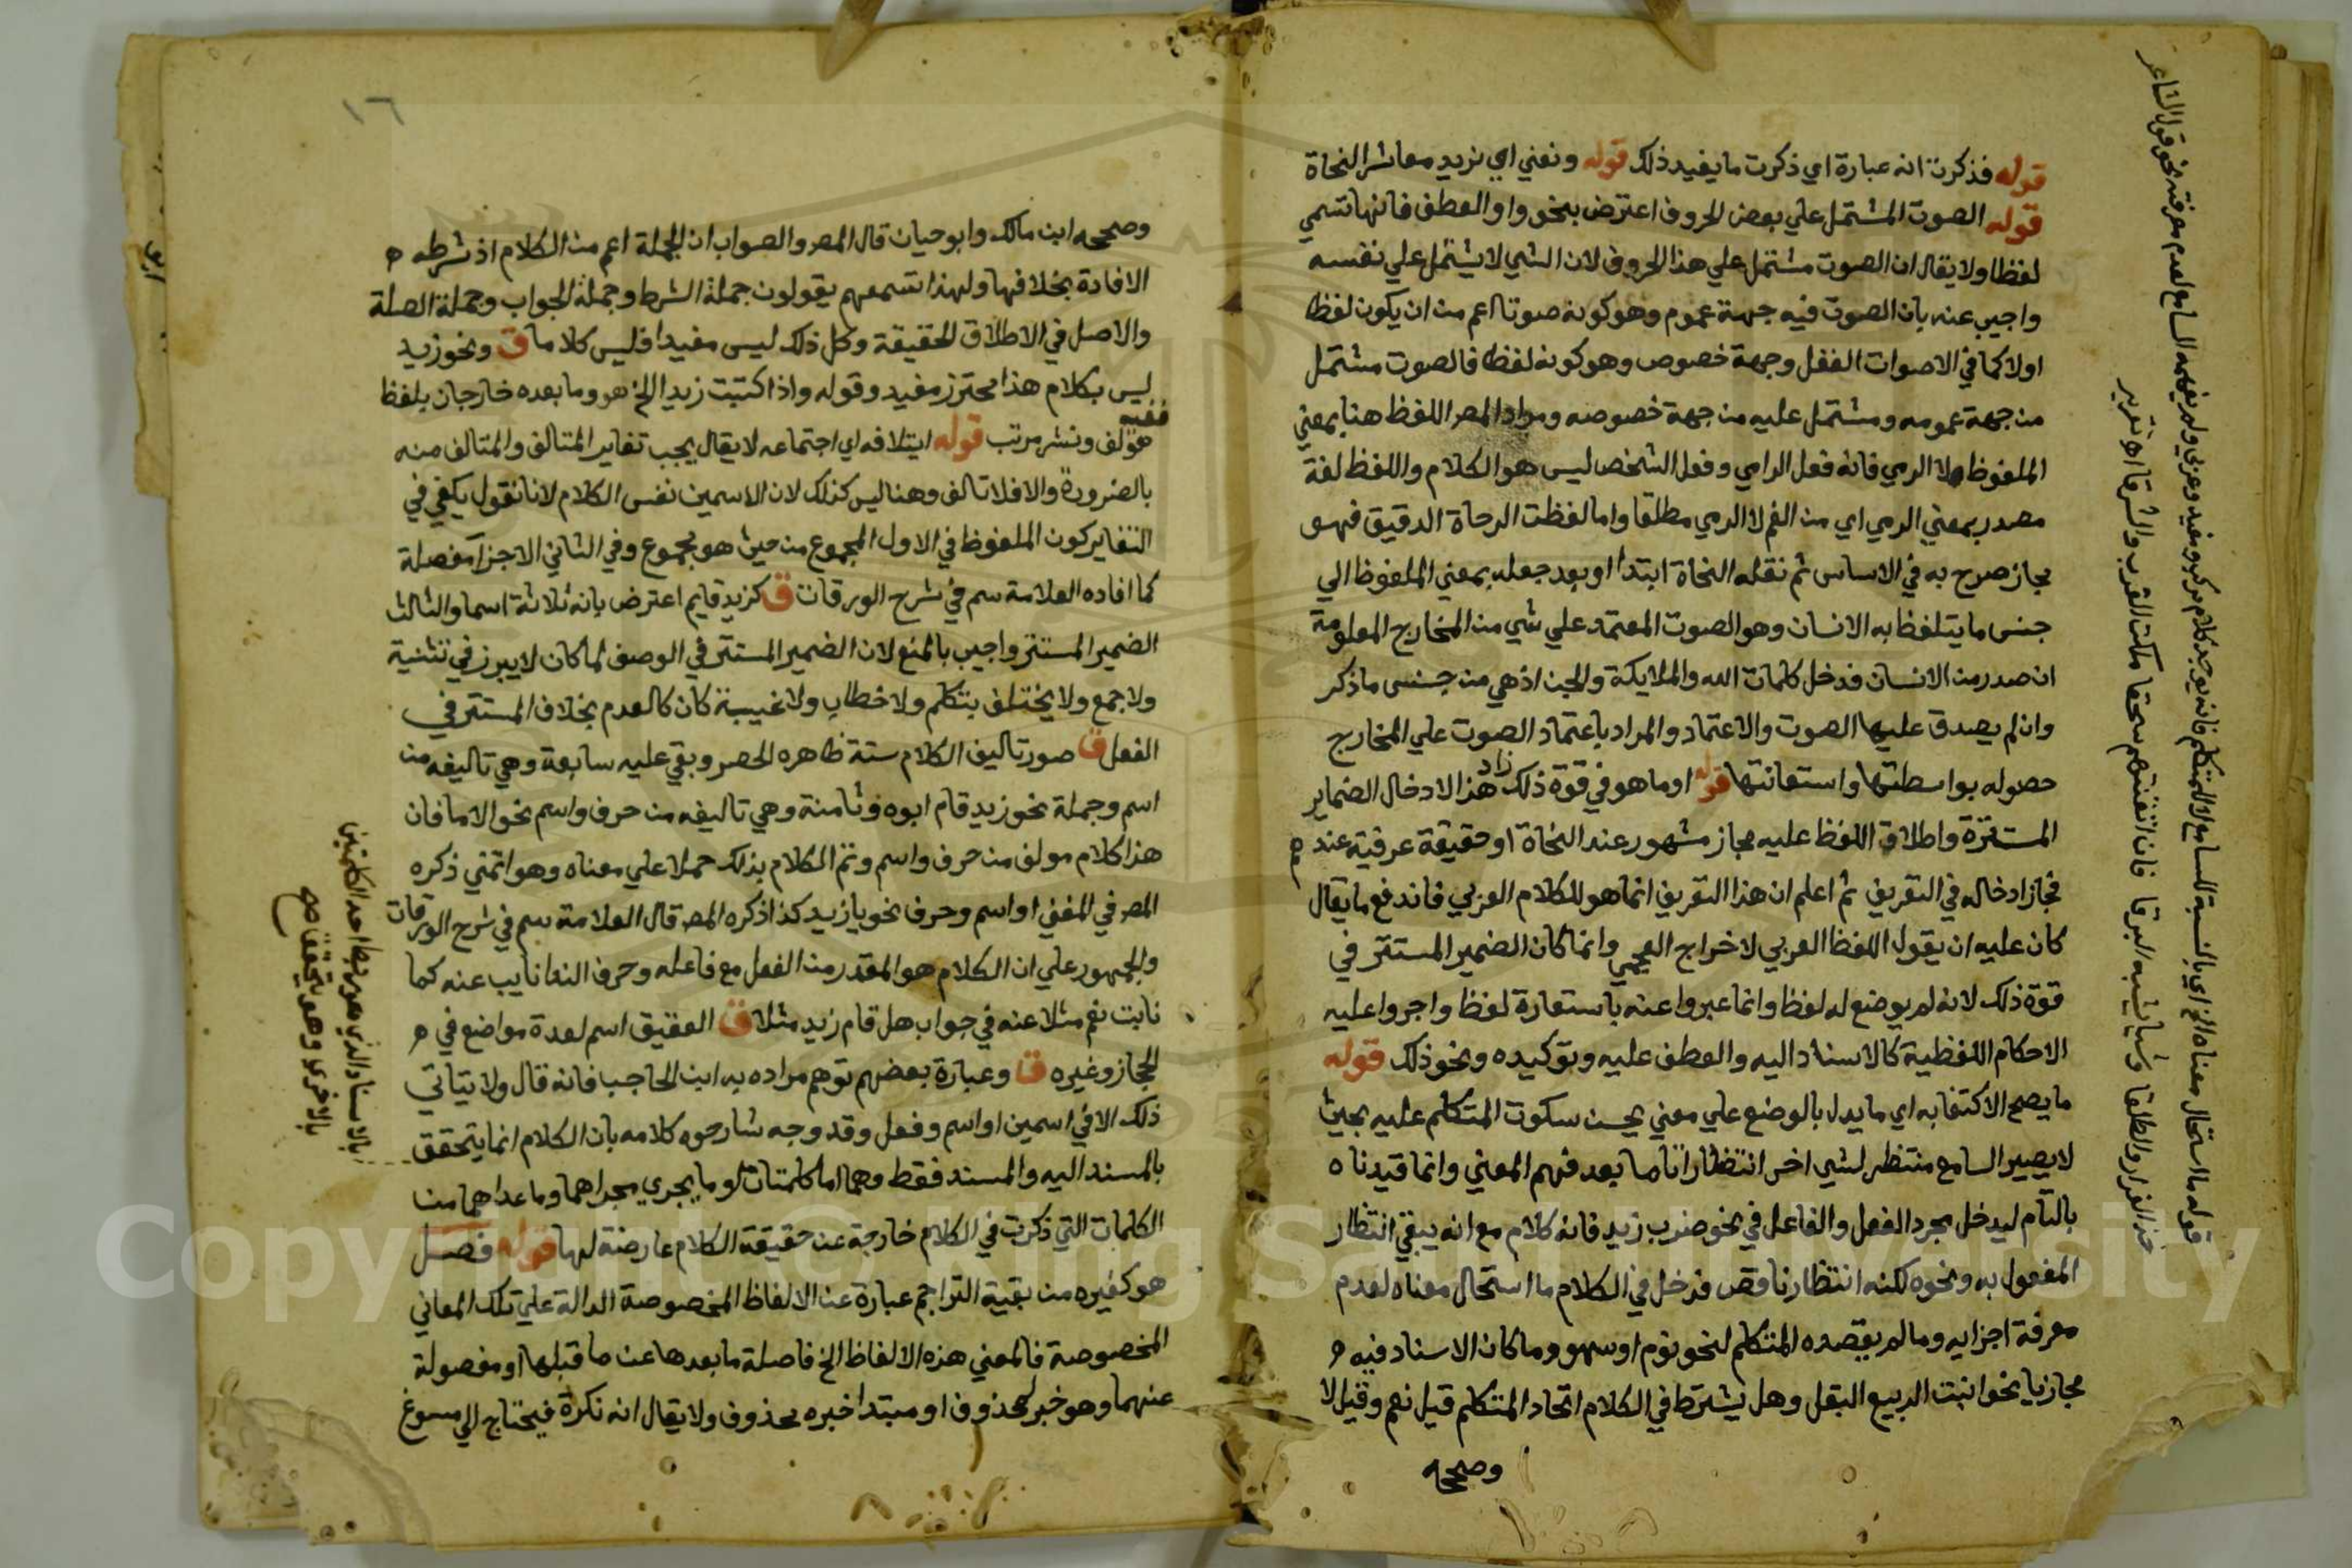 قوله فذكرت انه عبارة اي ذكرت ما يفيد ذلك قوله ونعني اي نريد معاشر النحاة
قوله الصوت المشتمل علي بعض الحروف اعترض بنحو واو العطف فانها تسمي
لفظا ولا يقال ان الصوت مشتمل علي هذا الحروف لان الشي لا يشتمل علي نفسه
واجيب عنه بان الصوت فيه جهة عموم وهو كونه صوتا اعم من ان يكون لفظا
اولا كما في الاصوات الغفل وجهة خصوص وهو كونه لفظا فالصوت مشتمل
من جهة عمومه ومشتمل عليه من جهة خصوصه ومراد المصر اللفظ هنا بمعني
الملفوظ ولا الرمي فانه فعل الرامي وفعل الشخص ليس هو الكلام واللفظ لغة
مصدر بمعني الرمي اي من الفم لا الرمي مطلقا واما لفظت الرحاة الدقيق فهو
مجاز صرح به في الاساس ثم نقله النحاة ابتدا او بعد جعله بمعني الملفوظ الي
جنس ما يتلفظ به الانسان وهو الصوت المعتمد علي شي من المخارج المعلومة
ان صدر من الانسان فدخل كلمات الله والملايكة والجن اذ هي من جنس ما ذكر
وان لم يصدق عليها الصوت والاعتماد والمراد باعتماد الصوت علي المخارج
حصوله بواسطتها واستعانتها قوله او ما هو في قوة ذلك زاد هذا لادخال الضماير
المستترة واطلاق اللفظ عليه مجاز مشهور عند النحاة او حقيقة عرفية عندهم
فجاز ادخاله في التعريف ثم اعلم ان هذا التعريف انما هو للكلام العربي فاندفع ما يقال
كان عليه ان يقول اللفظ العربي لاخراج العجمي وانما كان الضمير المستتر في
قوة ذلك لانه لم يوضع له لفظ وانما عبروا عنه باستعارة لفظ واجروا عليه
الاحكام اللفظية كالاسناد اليه والعطف عليه وتوكيده ونحو ذلك قوله
ما يصح الاكتفا به اي ما يدل بالوضع علي معني يحسن سكوت المتكلم عليه بحيث
لا يصير السامع منتظر لشي اخر انتظارا تاما بعد فهم المعني وانما قيدناه
بالتام ليدخل مجرد الفعل والفاعل في نحو ضرب زيد فانه كلام مع انه يبقي انتظار
المفعول به ونحوه لكنه انتظار ناقص فدخل في الكلام ما استحال معناه لعدم
معرفة اجزايه وما لم يقصده المتكلم لنحو نوم او سهو وما كان الاسناد فيه
مجازيا نحو انبت الربيع البقل وهل يشترط في الكلام اتحاد المتكلم قيل نعم وقيل لا
وصححه
قوله ما استحال معناه الخ اي بالنسبة للسامع لا المتكلم فانه يوجد كلام مركب ومفيد وعربي ولم يفهمه السامع لعدم معرفته نحو قول الشاعر
١٦
وصححه ابن مالك وابو حيان قال المصر والصواب ان الجملة اعم من الكلام اذ شرطه
الافادة بخلافها ولهذا تسمعهم يقولون جملة الشرط وجملة الجواب وجملة الصلة
والاصل في الاطلاق الحقيقة وكل ذلك ليس مفيدا فليس كلاما ق ونحو زيد
ليس بكلام هذا محترز مفيد وقوله واذا كتبت زيد الخ هو وما بعده خارجان بلفظ
ففيه
مؤلف ونشر مرتب قوله ايتلافه اي اجتماعه لا يقال يجب تغاير المتالف والمتالف منه
بالضرورة والا فلا تالف وهنا ليس كذلك لان الاسمين نفس الكلام لانا نقول يكفي في
التغاير كون الملفوظ في الاول المجموع من حيث هو مجموع وفي الثاني الاجزا مفصلة
كما افاده العلامة سم في شرح الورقات ق كزيد قايم اعترض بانه ثلاثة اسما والثالث
الضمير المستتر واجيب بالمنع لان الضمير المستتر في الوصف لما كان لا يبرز في تثنية
ولا جمع ولا يختلف بتكلم ولا خطاب ولا غيبة كان كالعدم بخلاف المستتر في
الفعل ق صور تاليف الكلام ستة ظاهره الحصر وبقي عليه سابعة وهي تاليفه من
اسم وجملة نحو زيد قام ابوه وثامنة وهي تاليفه من حرف واسم نحو الا ما فان
هذا كلام مولف من حرف واسم وتم الكلام بذلك حملا علي معناه وهو اتمني ذكره
المصر في المغني او اسم وحرف نحو يا زيد كذا ذكره المصر قال العلامة سم في شرح الورقات
والجمهور علي ان الكلام هو المقدر من الفعل مع فاعله وحرف الندا نايب عنه كما
نابت نعم مثلا عنه في جواب هل قام زيد مثلا ق العقيق اسم لعدة مواضع في
الحجاز وغيره ق وعبارة بعضهم توهم مراده به ابن الحاجب فانه قال ولا يتاتي
ذلك الا في اسمين او اسم وفعل وقد وجه شارحوه كلامه بان الكلام انما يتحقق
بالمسند اليه والمسند فقط وهما اما كلمتان او ما يجري مجراهما وما عداهما من
الكلمات التي ذكرت في الكلام خارجة عن حقيقة الكلام عارضة لها قوله فصل
هو كغيره من بقية التراجم عبارة عن الالفاظ المخصوصة الدالة علي تلك المعاني
المخصوصة فالمعني هذه الالفاظ الخ فاصلة ما بعدها عن ما قبلها او مفصولة
عنهما وهو خبر لمحذوف او مبتدا خبره محذوف ولا يقال انه نكرة فيحتاج الي مسوغ
بالاسناد الذي هو ربط احد الكلمتين
بالاخري وهو يتحقق صح
Copyright © King Saud University